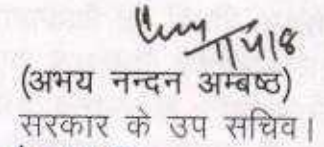 11/4/18
(अभय नन्दन अम्बष्ठ)
सरकार के उप सचिव।